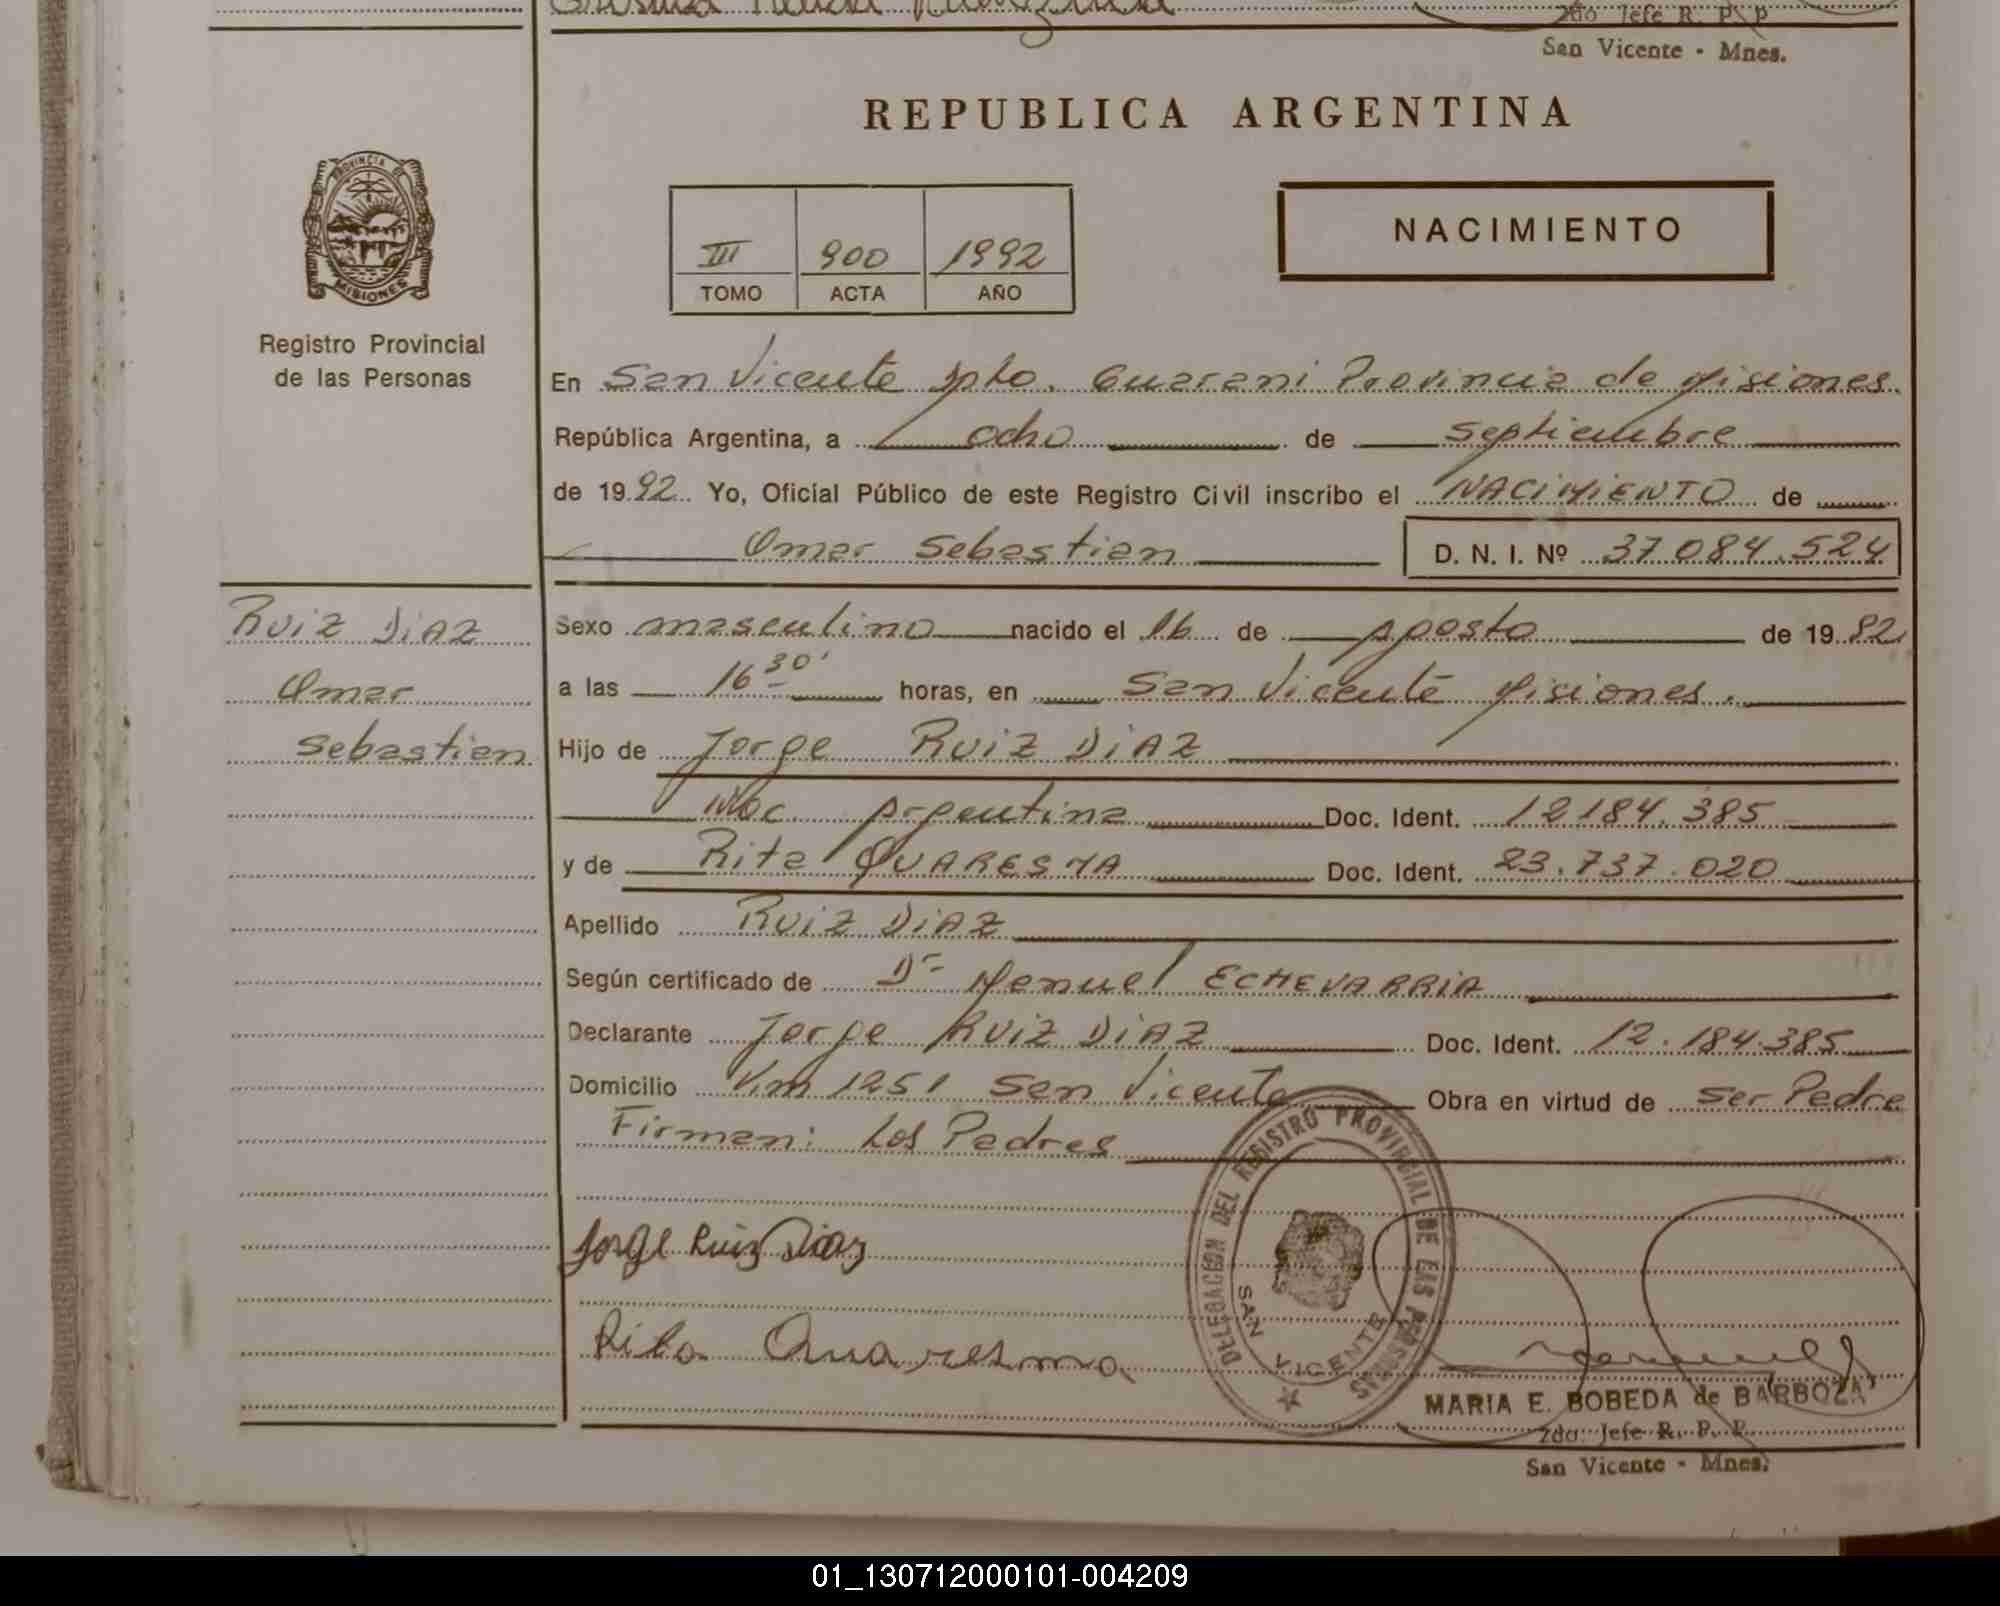 2do Jefe R. P. P.
San Vicente - Mnes.
REPUBLICA ARGENTINA
PROVINCIA DE
MISIONES
Registro Provincial
de las Personas
III 900 1992
TOMO ACTA AÑO
NACIMIENTO
En San Vicente Dpto. Guarani Provincia de Misiones
República Argentina, a ocho de septiembre
de 1992 Yo, Oficial Público de este Registro Civil inscribo el NACIMIENTO de
Omar Sebastian D. N. I. Nº 37.084.524
Ruiz DiAZ
Omar
Sebastian
Sexo masculino nacido el 16 de Agosto de 1992
a las 16 30' horas, en San Vicente Misiones.
Hijo de Jorge Ruiz DiAZ
Nac. Argentina Doc. Ident. 12184.385
y de Rita QUARESMA Doc. Ident. 23.737.020
Apellido Ruiz DiAZ
Según certificado de Dr Manuel ECHEVARRiA
Declarante Jorge Ruiz DiAZ Doc. Ident. 12.184.385
Domicilio Km 1251 San Vicente Obra en virtud de ser Padre
Firman: Los Padres
Jorge Ruiz Diaz
Rita Quaresma
DELEGACION DEL REGISTRO PROVINCIAL DE LAS PERSONAS
SAN VICENTE
MARIA E. BOBEDA de BARBOZA
2do. Jefe R. P. P.
San Vicente - Mnes.
01_130712000101-004209